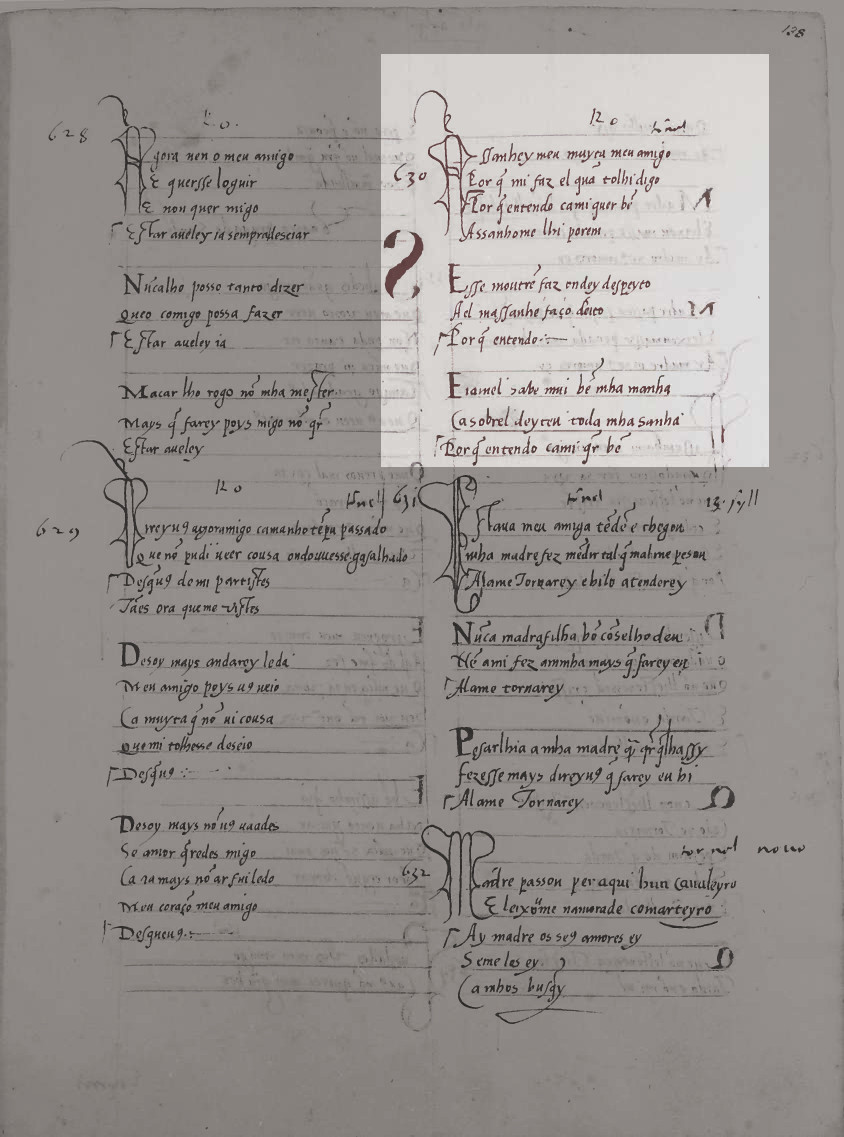 138
628
Ro.
Agora uen o meu amigo
E quersse loguir
E non quer migo
Estar aueley ia sempra desciar
Nūcalho posso tanto dizer
Queo comigo possa fazer
Estar aueley ia
Macar lho rogo nō mha mester
Mays q̄ farey poys migo nō qr̄
Estar aueley
629
Ro
Tornel
Direyuꝯ agoramigo camanho tēpa passado
Que nō pudi ueer cousa ondouuesse gasalhado
Desquꝯ de mi partistes
Tāes ora queme uistes
Desoy mays andarey leda
Meu amigo poys uꝯ ueio
Ca muyta q̄ nō ui cousa
Que mi tolhesse deseio
Desq̄uꝯ
Desoy mays nō uꝯ uaades
Se amor q̄redes migo
Ca ia mays nō ar fui ledo
Meu coraçō meu amigo
Desqueuꝯ
630
Ro
tornel
Assanhey meu muyta meu amigo
Por q̄ mi faz el quā tolhi digo
Por q̄ entendo cami quer bē
Assanhome lhi porem
Esse moutrē faz ondey despeyto
Ael massanhe faço dēito
Por q̄ entendo
Eiamel sabe mui bē mha manha
Ca sobrel deyteu toda mha sanha
Por q̄ entendo cami qr̄ bē
631
tornel
Estaua meu amiga tēdē e chegou
Mha madre fez mēdir tal q̄ malme pesou
Alame Tornarey e hilo atenderey
Nūca madrafilha bō cōselho deu
Nē ami fez ammha mays q̄ farey eu
Alame tornarey
Pesarlhia amha madre
fezesse mays direyuꝯ q̄ farey eu hi
Alame Tornarey
632
tornel nouo
Madre passou per aqui hun caualeyro
E leixōme namorade comarteyro
Ay madre os seꝯ amores ey
Seme los ey
Ca mhos busq̄y